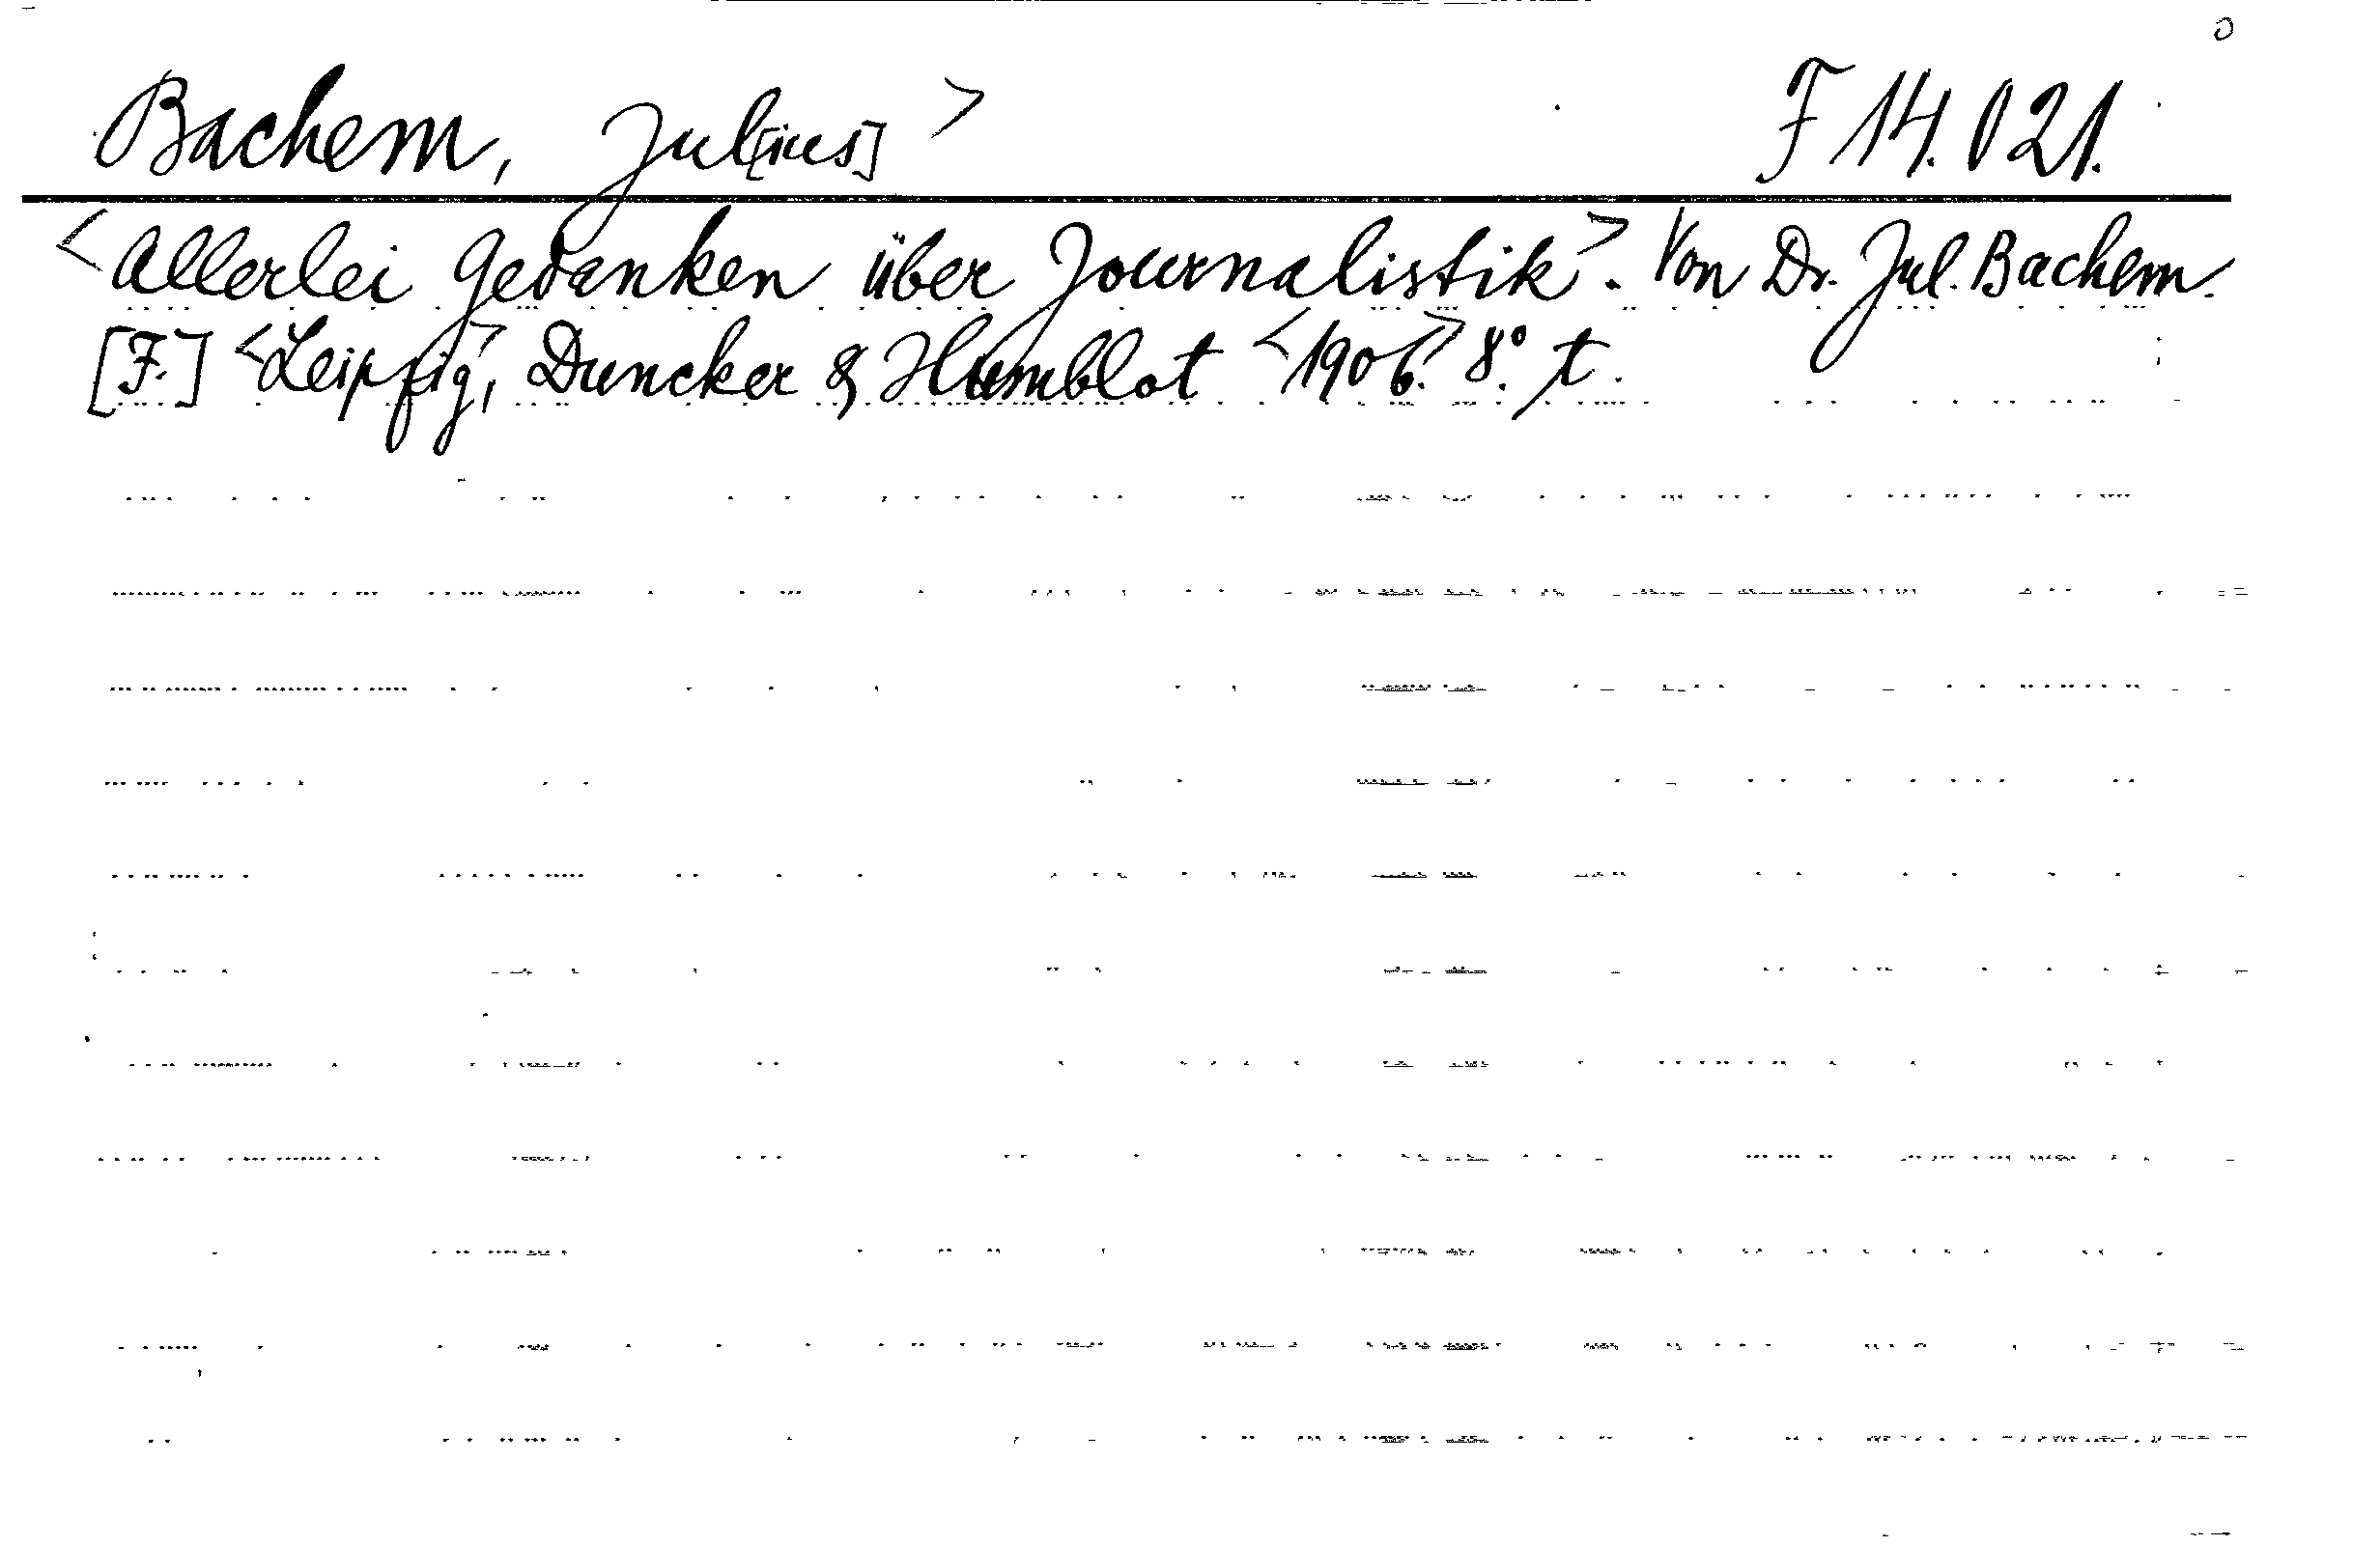 Bachem, Jul[ius]> F 14.021.
<Allerlei Gedanken über Journalistik>. Von Dr. Jul. Bachem.
[F.] <Leipzig>, Duncker & Humblot <1906.> 8°. t.